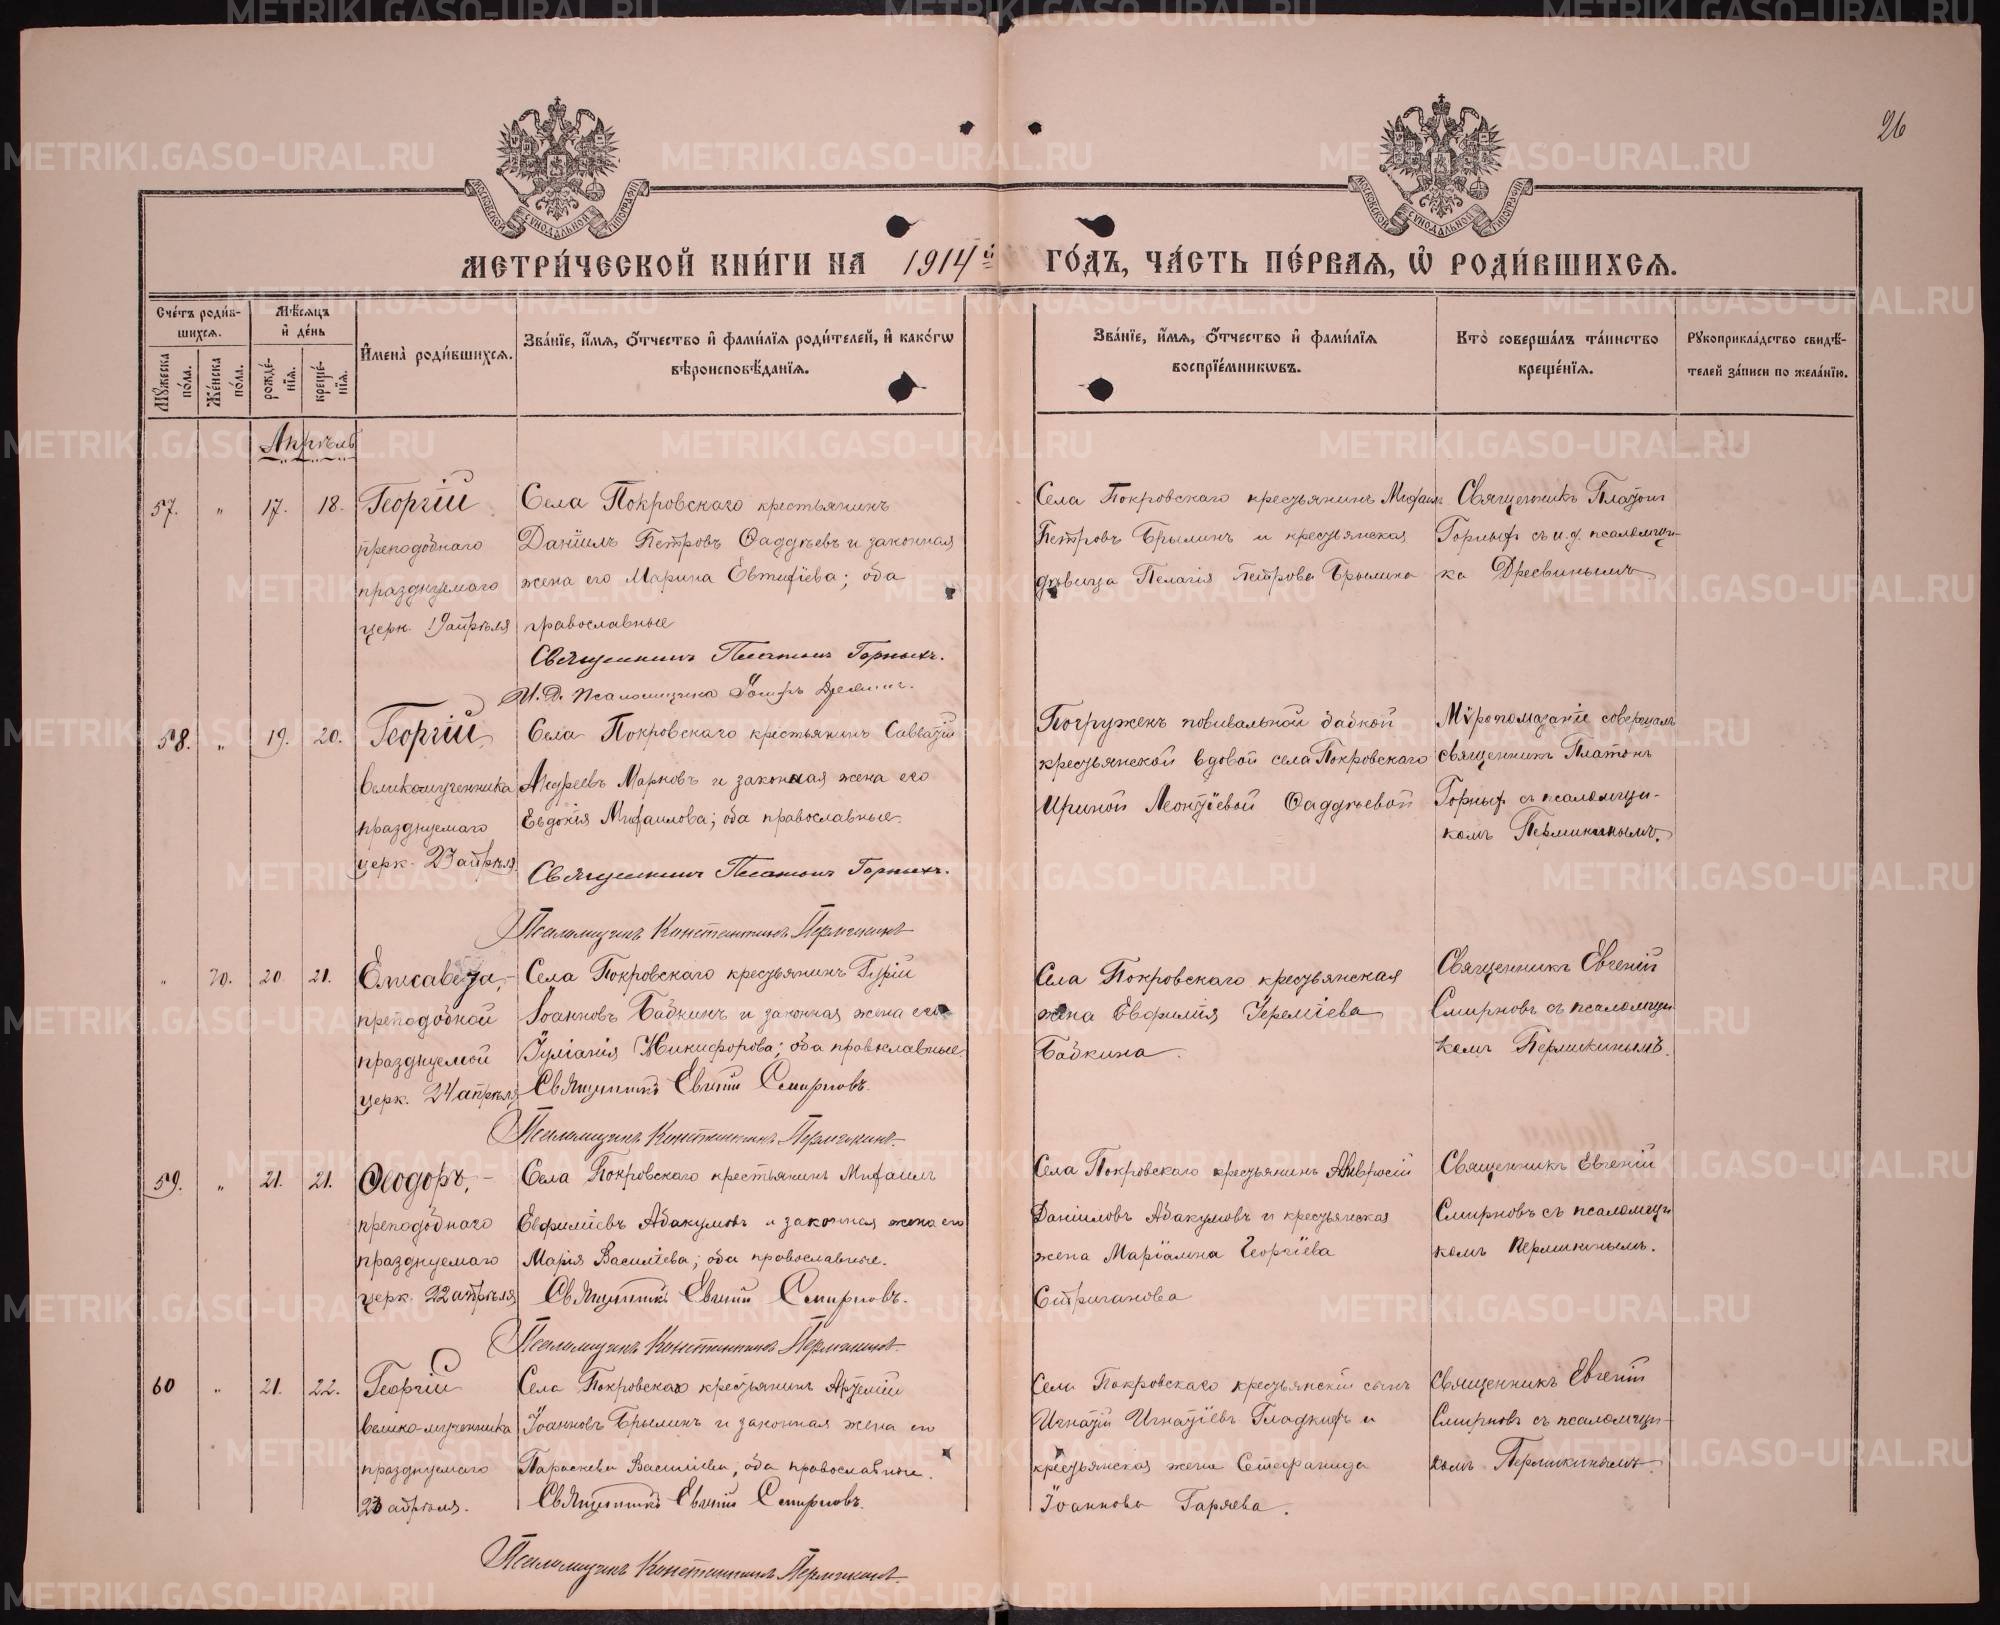 26
МОСКОВСКОЙ СУНОДАЛЬНОЙ ТИПОГРАФІИ
МОСКОВСКОЙ СУНОДАЛЬНОЙ ТИПОГРАФІИ
МЕТРИ́ЧЕСКОЙ КНИ́ГИ НА 1914й ГО́ДЪ, ЧА́СТЬ ПЕ́РВАЯ, Ѡ РОДИ́ВШИХСЯ.
Сче́тъ роди́в-
шихся.
Мꙋ́жеска по́ла.
Же́нска по́ла.
Мѣ́сяцъ и де́нь
рожде́-
нїя.
креще́-
нїя.
Имена̀ роди́вшихся.
Зва́нїе, и́мя, о́тчество и фами́лїя роди́телей, и како́гѡ
вѣроисповѣ́данїя.
Зва́нїе, и́мя, о́тчество и фами́лїя
воспрїе́мникѡвъ.
Кто̀ соверша́лъ та́инство
креще́нїя.
Рꙋкоприкла́дство свидѣ́-
телей за́писи по жела́нїю.
Апрѣль
57. " 17. 18. Георгій
преподобнаго
празднуемаго
церк. 19 апрѣля
Села Покровскаго крестьянинъ
Даніилъ Петровъ Ѳаддѣевъ и законная
жена его Марина Евтихіева; оба
православные
Священникъ Платонъ Горныхъ.
И. Д. Псаломщика Іосифъ Дресвинъ.
Села Покровскаго крестьянинъ Михаилъ
Петровъ Брылинъ и крестьянская
дѣвица Пелагія Петрова Брылина
Священникъ Платонъ
Горныхъ съ и. д. псаломщи-
ка Дресвинымъ
58. " 19. 20. Георгій,
великомученника
празднуемаго
церк. 23 апрѣля
Села Покровскаго крестьянинъ Савватій
Андреевъ Марковъ и законная жена его
Евдокія Михаилова; оба православные.
Священникъ Платонъ Горныхъ.
Псаломщикъ Константинъ Перминкинъ
Погруженъ повивальной бабкой
крестьянской вдовой села Покровскаго
Ириной Леонтіевой Ѳаддѣевой
Мѵропомазаніе совершалъ
священникъ Платонъ
Горныхъ съ псаломщи-
комъ Перминкинымъ.
" 70. 20. 21. Елисавета,
преподобной
празднуемой
церк. 24 апрѣля
Села Покровскаго крестьянинъ Гурій
Іоанновъ Бабкинъ и законная жена его
Іуліанія Никифорова; оба православные.
Священникъ Евгеній Смирновъ.
Псаломщикъ Константинъ Перминкинъ
Села Покровскаго крестьянская
жена Евфимія Іереміева
Бабкина.
Священникъ Евгеній
Смирновъ съ псаломщи
комъ Перминкинымъ.
59. " 21. 21. Ѳеодоръ,
преподобнаго
празднуемаго
церк. 22 апрѣля
Села Покровскаго крестьянинъ Михаилъ
Евфиміевъ Абакумовъ и законная жена его
Марія Василіева; оба православные.
Священникъ Евгеній Смирновъ.
Псаломщикъ Константинъ Перминкинъ
Села Покровскаго крестьянинъ Амвросій
Даніиловъ Абакумовъ и крестьянская
жена Маріамна Георгіева
Стриганова
Священникъ Евгеній
Смирновъ съ псаломщи
комъ Перминкинымъ.
60 " 21. 22. Георгій
великомученника
празднуемаго
23 апрѣля.
Села Покровскаго крестьянинъ Артемій
Іоанновъ Брылинъ и законная жена его
Параскева Василіева, оба православные.
Священникъ Евгеній Смирновъ.
Псаломщикъ Константинъ Перминкинъ
Села Покровскаго крестьянскій сынъ
Игнатій Игнатіевъ Гладкихъ и
крестьянская жена Стефанида
Іоаннова Гаряева.
Священникъ Евгеній
Смирновъ съ псаломщи-
комъ Перминкинымъ
METRIKI.GASO-URAL.RU